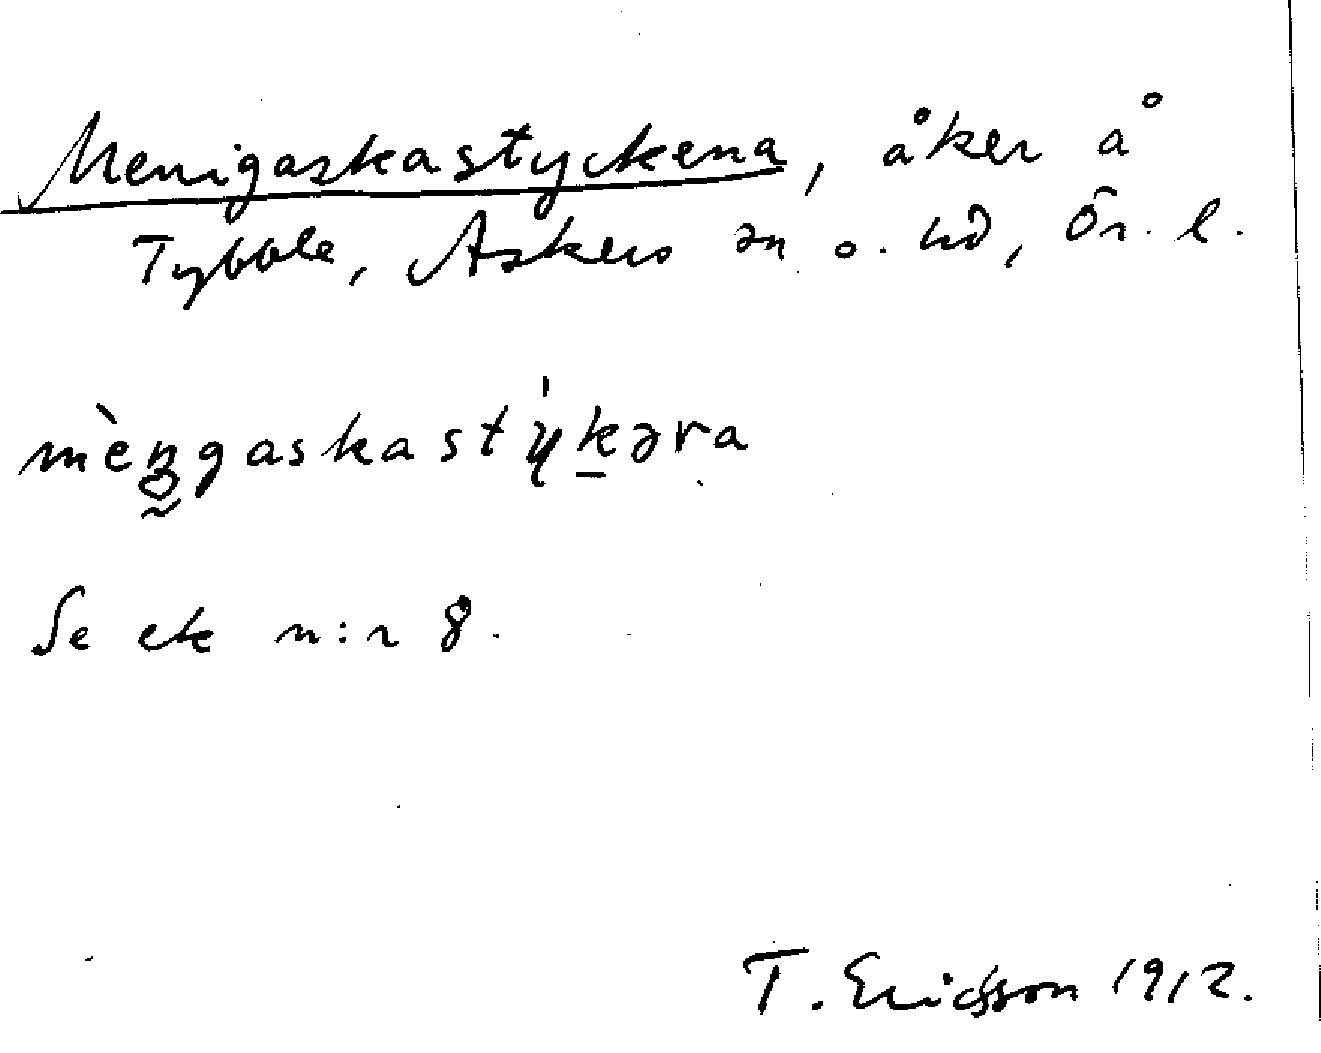 Menigaskastyckena, åker å
Tybble, Askers sn o. hd, Ör. l.
mèngaskastýkəra
Se ek n:r 8.
T. Ericsson 1912.